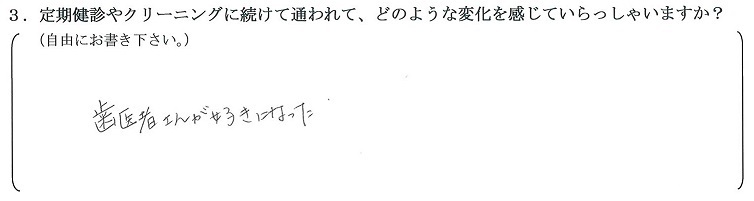 3．定期健診やクリーニングに続けて通われて、どのような変化を感じていらっしゃいますか？
（自由にお書き下さい。）
歯医者さんが好きになった